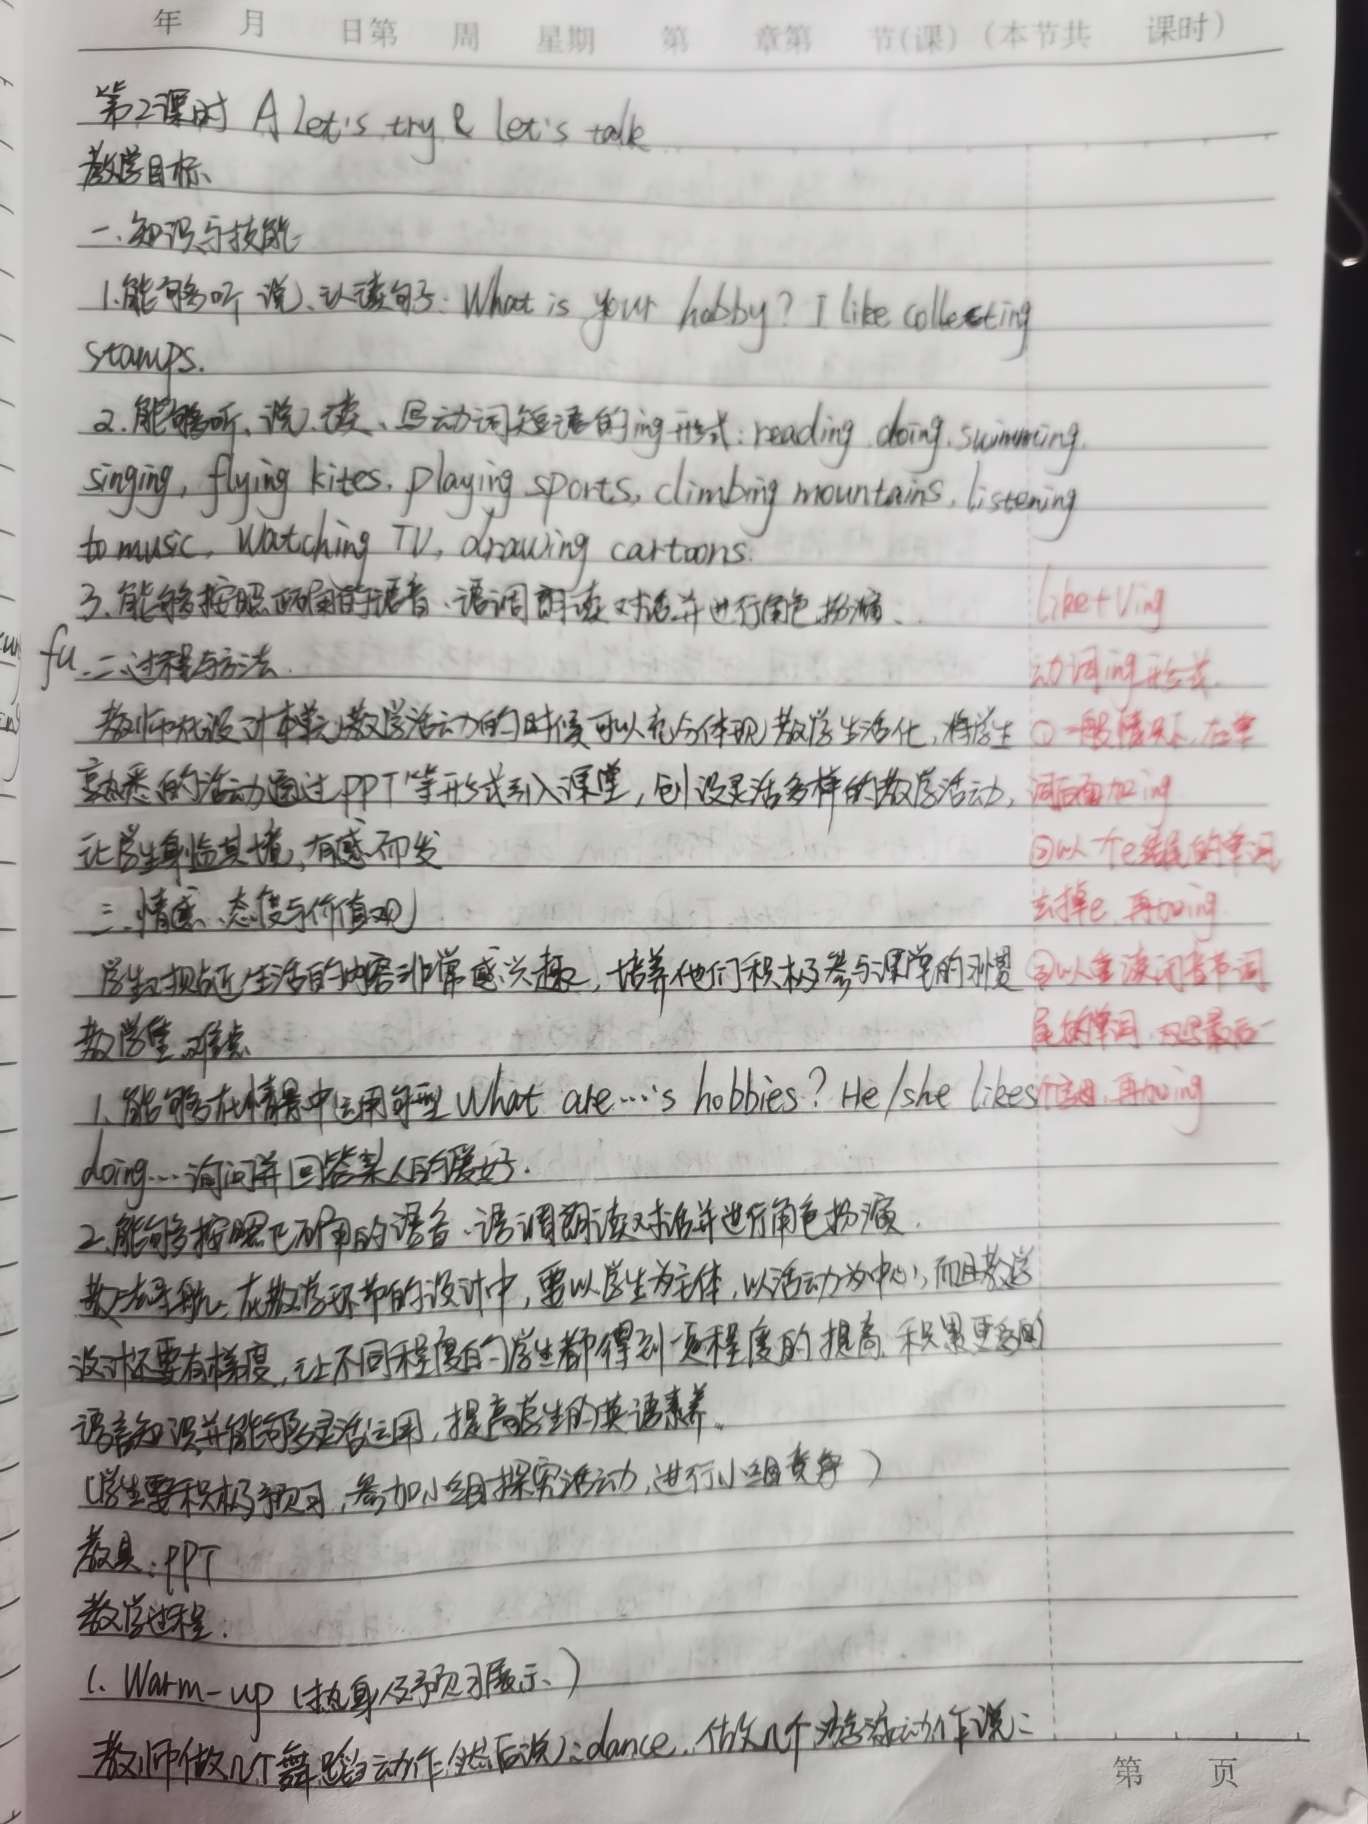 年 月 日第 周 星期 第 章第 节(课)(本节共 课时)
第2课时 A let's try & let's talk
教学目标
一、知识与技能
1.能够听、说、认读句子: What is your hobby? I like collecting
stamps.
2.能够听、说、读、写动词短语的ing形式: reading, doing, swimming,
singing, flying kites, playing sports, climbing mountains, listening
to music, watching TV, drawing cartoons.
3.能够按照正确的语音、语调朗读对话并进行角色扮演、
fu
二、过程与方法
教师在设计本单元教学活动的时候可以充分体现教学生活化,将学生
熟悉的活动通过PPT等形式引入课堂,创设灵活多样的教学活动,
让学生身临其境,有感而发
三、情感、态度与价值观
学生对贴近生活的内容非常感兴趣,培养他们积极参与课堂的习惯
教学重、难点
1.能够在情景中运用句型 What are…'s hobbies? He/she likes
doing…询问并回答某人的爱好.
2.能够按照正确的语音、语调朗读对话并进行角色扮演.
教法导航:在教学环节的设计中,要以学生为主体,以活动为中心,而且教学
设计还要有梯度,让不同程度的学生都得到一定程度的提高,积累更多的
语言知识并能够灵活运用,提高学生的英语素养。
(学生要积极预习,参加小组探究活动,进行小组竞争)
教具:PPT
教学过程:
1. Warm-up (热身及预习展示)
教师做几个舞蹈动作,然后说: dance. 做几个游泳动作说:
like+Ving
动词ing形式
①一般情况下,在单
词后面加ing
②以不e结尾的单词
去掉e,再加ing
③以重读闭音节词
尾的单词,双写最后一
个字母,再加ing
第 页